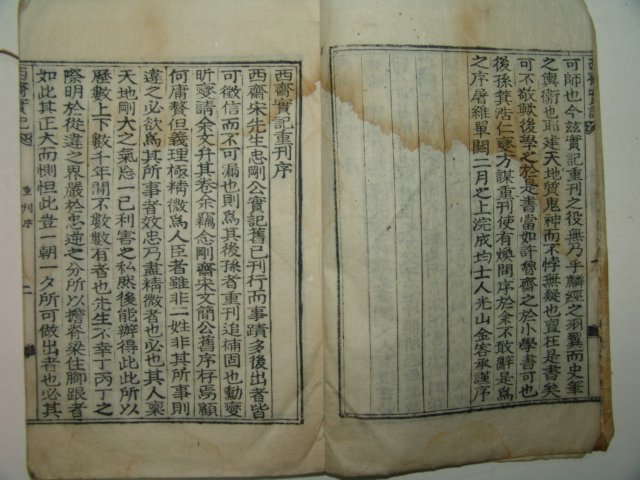 可師也今玆實記重刊之役無乃乎麟經之羽翼而史筆
之輿衛也耶建天地質鬼神而不悖無疑也亶在是書矣
可不敬歟後學之於是書當如許魯齋之於小學書可也
後孫箕浩仁燮方謀重刊使有煥問序於余不敢辭是爲
之序屠維單閼二月之上浣成均士人光山金容承謹序
西齋實記重刊序
西齋宋先生忠剛公實記舊已刊行而事蹟多後出者皆
可徵信而不可漏也則爲其後孫者重刊追補固也勳燮
昕燮請余文弁其卷余竊念剛齋宋文簡公舊序存焉顧
何庸贅但義理極精微爲人臣者雖非二姓非其所事則
違之必欲爲其所事者效忠乃盡精微者也必其人稟
天地剛大之氣忘一己利害之私然後能辦得此此所以
歷數上下數千年間不數數有者也先生不幸丁丙丁之
際明於從違之界嚴於忠逆之分所以擔脊梁住腳跟者
如此其正大而惻怛此豈一朝一夕所可做出者也必其
西齋實記 重刊序 二